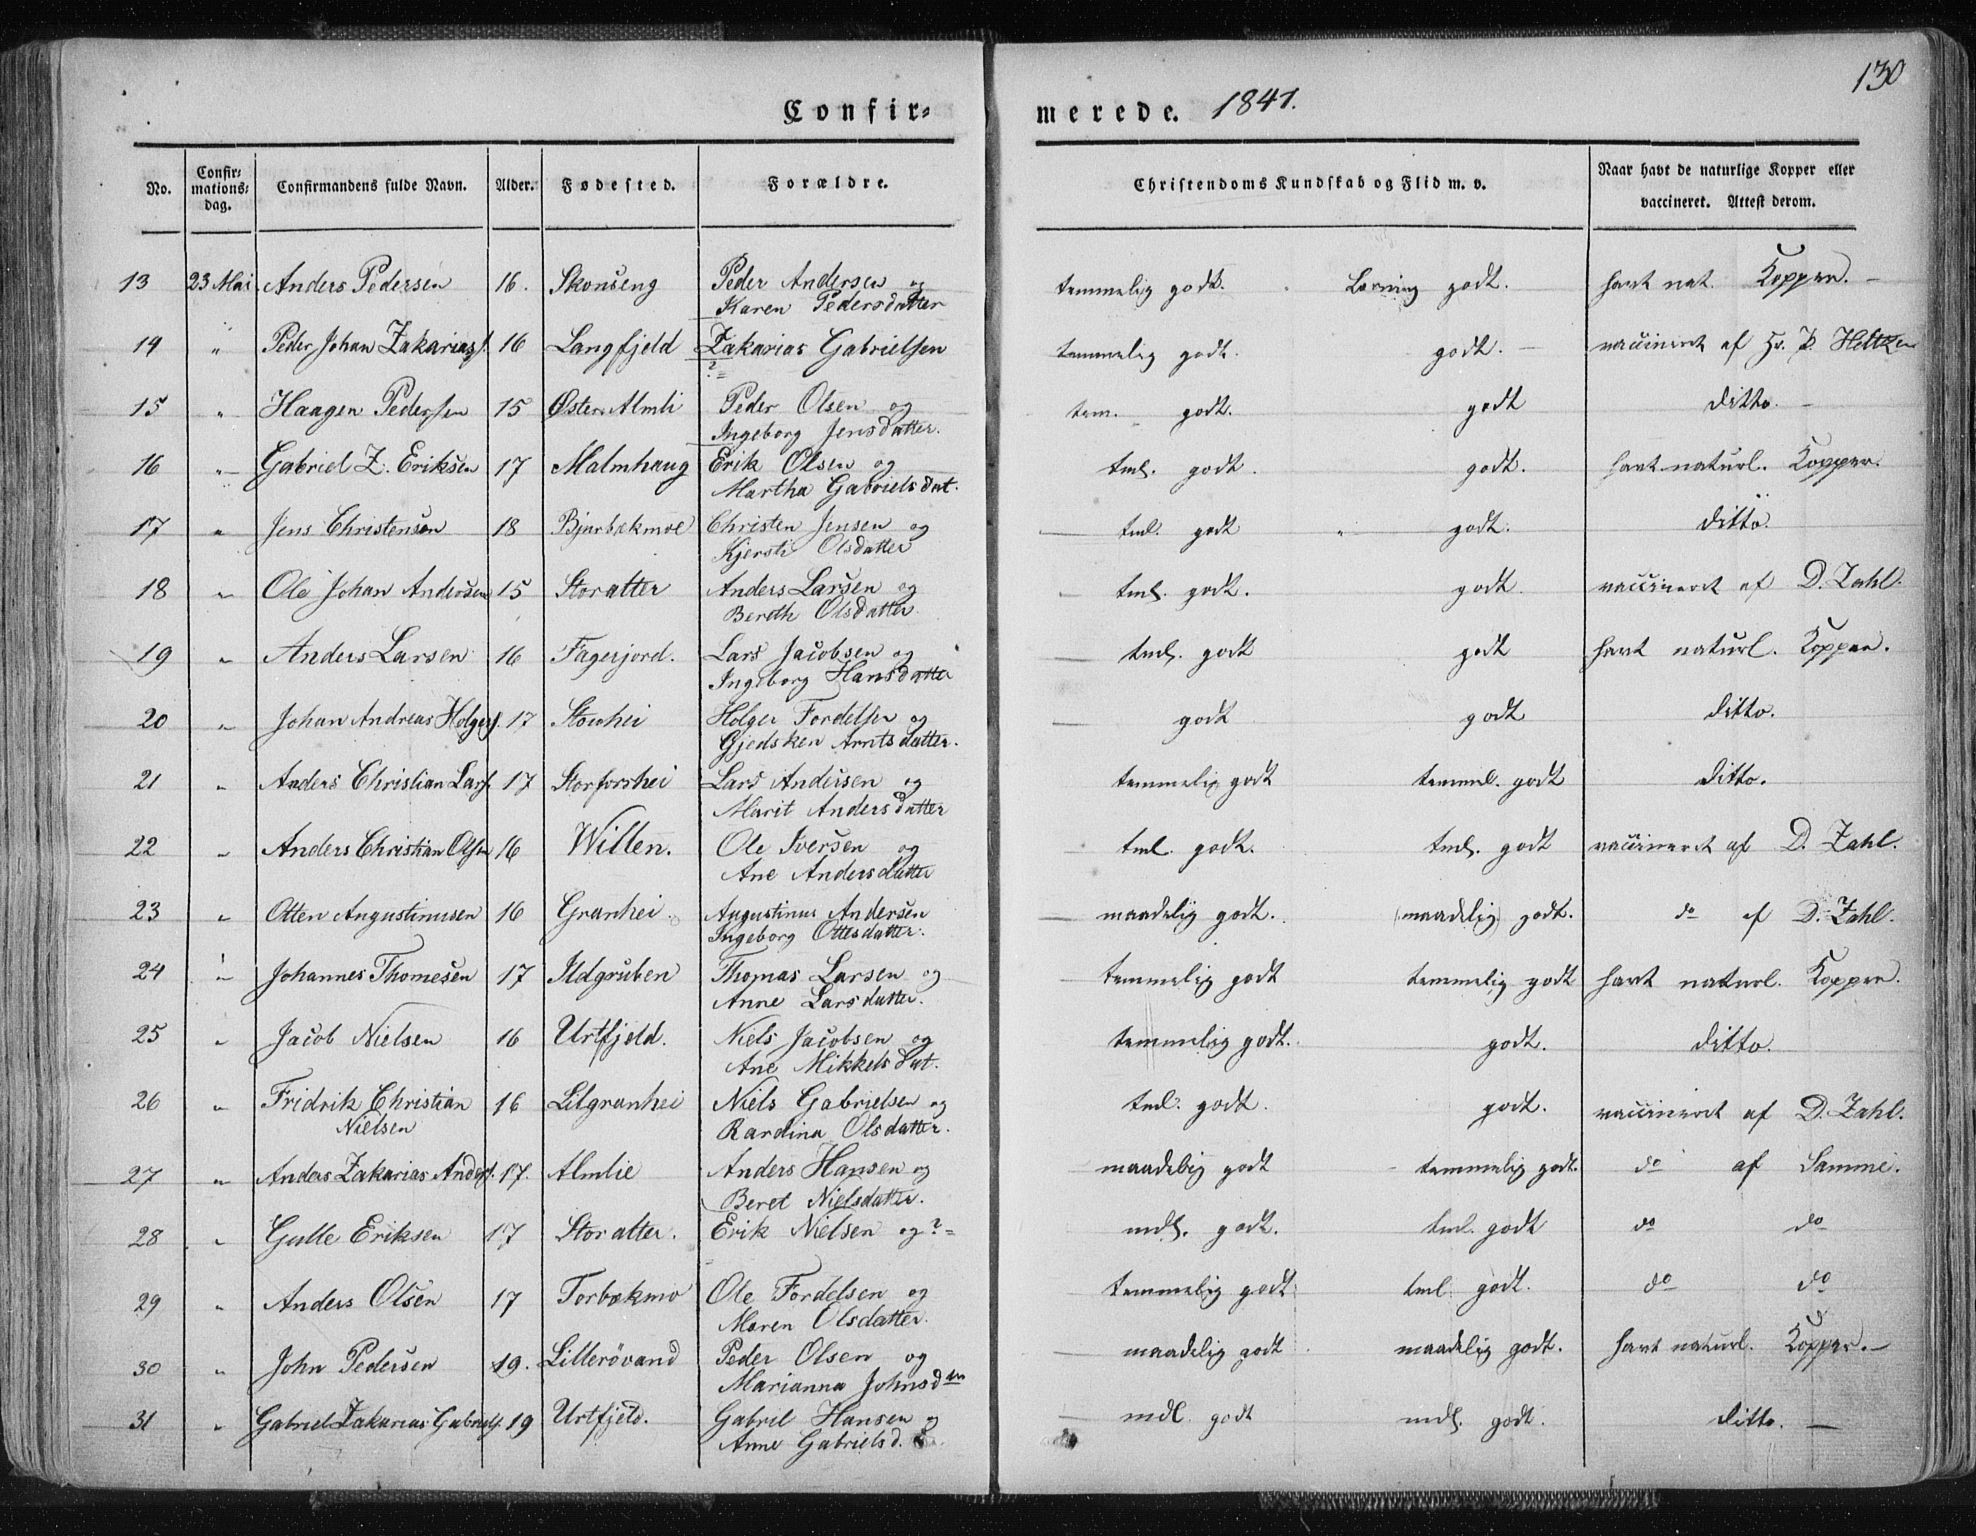 130
Confir= merede. 1841.
No. Confir=mations=dag. Confirmandens fulde Navn. Alder. Fødested. Forældre. Christendoms Kundskab og Flid m. v. Naar havt de naturlige Kopper eller vaccineret. Attest derom.
13 23 Mai. Anders Pedersen 16. Skonseng Peder Andersen og temmelig godt. Lærning godt. havt nat. Kopper. —
Karen Pedersdatter
14 " Peder Johan Zakarias. 16 Langfjeld Zakarias Gabrielsen temmelig godt. godt. — vaccineret af Hr. P. Heltzen
?=
15 " Haagen Pedersen 15 Øster Almli Peder Olsen og tem. godt. godt ditto. —
Ingeborg Jensdatter.
16 " Gabriel Z. Eriksen 17 Malmhaug Erik Olsen og tml. godt. godt. havt naturl. Kopper.
Martha Gabrielsdat.
17 " Jens Christensen 18 Bjurbækmoe Christen Jensen og tml. godt " godt. ditto.
Kjersti Olsdatter
18 " Ole Johan Andersen 15 Storatter Anders Larsen og tml. godt. godt. vaccineret af D. Zahl.
Bereth Olsdatter
19 " Anders Larsen 16 Fagerjord. Lars Jacobsen og tml. godt godt havt naturl. Kopper.
Ingeborg Hansdatter
20 " Johan Andreas Holgers. 17 Storhei Holger Fordelsen og godt godt ditto.
Gjedsken Arntsdatter.
21 " Anders Christian Lars. 17 Storforshei Lars Andersen og temmelig godt temmel. godt ditto.
Marit Andersdatter
22 " Anders Christian Olsen 16 Willen. Ole Iversen og tml. godt. tml. godt vaccineret af D. Zahl.
Ane Andersdatter
23 " Otten Augustinusen 16 Granhei. Augustinus Andersen maadelig godt. (maadelig) godt. do af D. Zahl.
Ingeborg Ottesdatter.
24 " Johannes Thomesen 17 Ildgruben Thomas Larsen og temmelig godt temmelig godt havt naturl. Kopper.
Anne Larsdatter.
25 " Jacob Nielsen 16 Urtfjeld. Niels Jacobsen og temmelig godt. godt. ditto.
Ane Mikkelsdat.
26 " Fridrik Christian 16 Lilgranhei Niels Gabrielsen og tml. godt. godt. vaccineret af D. Zahl.
Nielsen Kardina Olsdatter.
27 " Anders Zakarias Anders. 17. Almlie Anders Hansen og maadelig godt temmelig godt. do af Samme.
Beret Nielsdatter.
28 " Gulle Eriksen 17 Storatter. Erik Nielsen og ?= mdl. godt. tml. godt do do
29 " Anders Olsen 17 Torbækmo Ole Fordelsen og temmelig godt. tml. godt. do do
Maren Olsdatter.
30 " John Pedersen 19. Lillerövand Peder Olsen og maadelig godt maadelig godt. havt naturl. Kopper. —
Marianna Johnsdtr
31 " Gabriel Zakarias Gabriels. 19 Urtfjeld. Gabril Hansen og mdl. godt mdl. godt. ditto. —
Anne Gabrielsd.